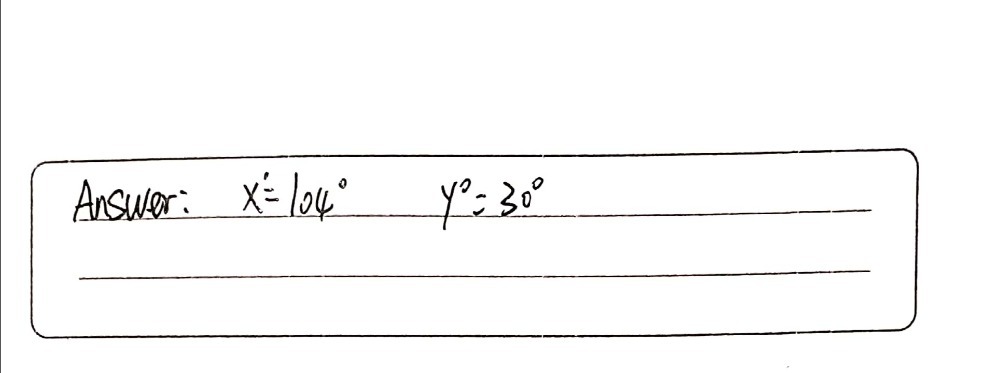 Answer: x°= 104° y°= 30°